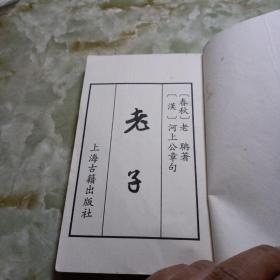 〔春秋〕老聃著
〔漢〕河上公章句
老子
上海古籍出版社